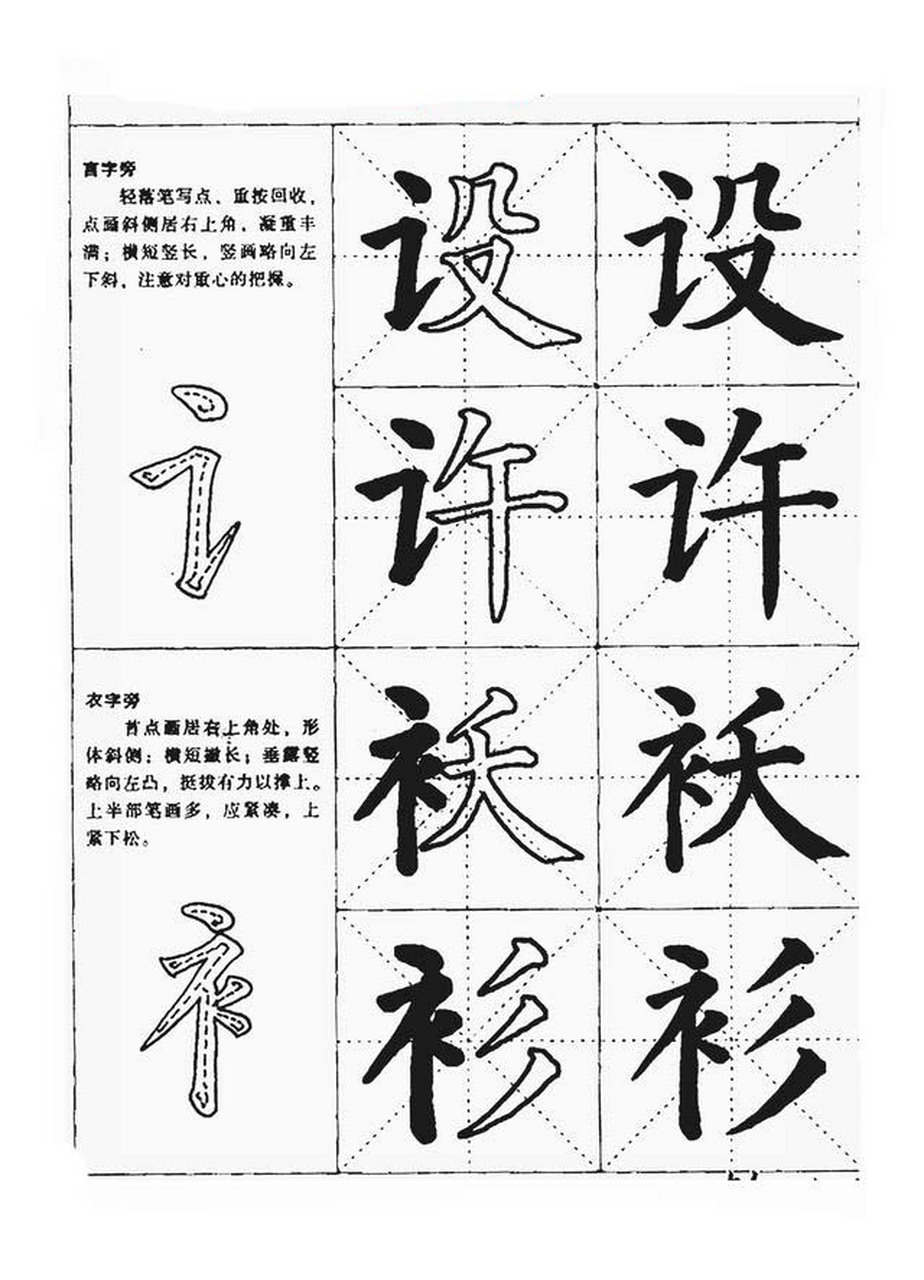 言字旁
轻落笔写点、重按回收，
点画斜侧居右上角，凝重丰
满；横短竖长，竖画略向左
下斜，注意对重心的把握。
讠
设 设
许 许
衣字旁
首点画居右上角处，形
体斜侧；横短撇长；垂露竖
略向左凸，挺拔有力以撑上。
上半部笔画多，应紧凑，上
紧下松。
衤
袄 袄
衫 衫